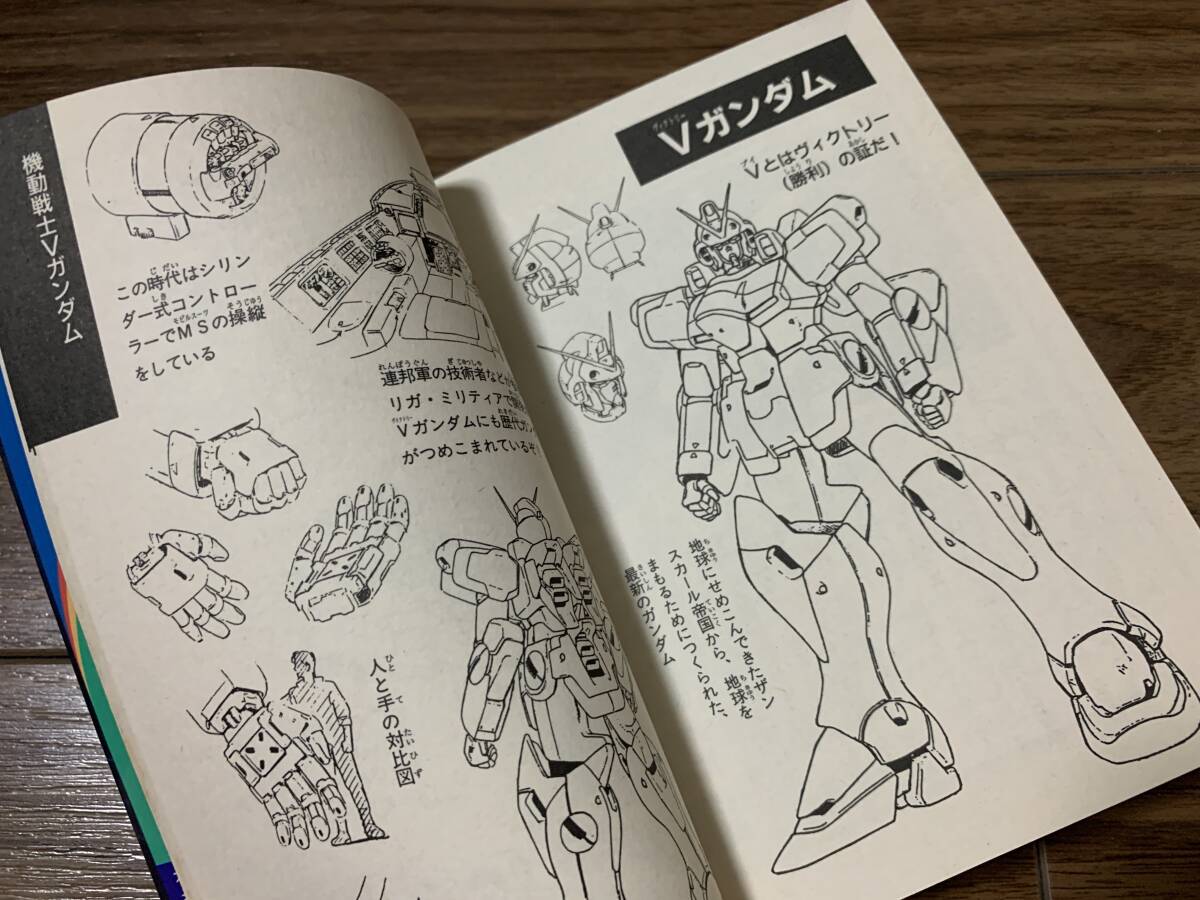 機動戦士Vガンダム
この時代はシリン
ダー式コントロー
ラーでMSの操縦
をしている
連邦軍の技術者など
リガ・ミリティアで
Vガンダムにも歴代ガン
がつめこまれているぞ
人と手の対比図
Vガンダム
Vとはヴィクトリー
(勝利)の証だ!
地球にせめこんできたザン
スカール帝国から、地球を
まもるためにつくられた、
最新のガンダム